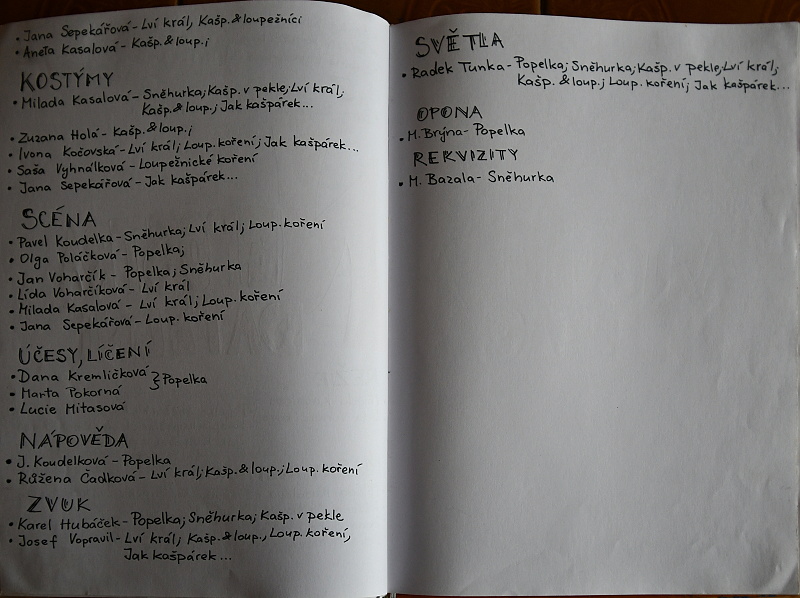 • Jana Sepekářová - Lví král, Kašp. & loupežníci
• Aneta Kasalová - Kašp. & loup.;
KOSTÝMY
• Milada Kasalová - Sněhurka; Kašp. v pekle; Lví král;
Kašp. & loup.; Jak kašpárek...
• Zuzana Holá - Kašp. & loup.;
• Ivona Kočovská - Lví král; Loup. koření; Jak kašpárek...
• Saša Vyhnálková - Loupežnické koření
• Jana Sepekářová - Jak kašpárek...
SCÉNA
• Pavel Koudelka - Sněhurka; Lví král; Loup. koření
• Olga Poláčková - Popelka;
• Jan Voharčík - Popelka; Sněhurka
• Lída Voharčíková - Lví král
• Milada Kasalová - Lví král; Loup. koření
• Jana Sepekářová - Loup. koření
ÚČESY, LÍČENÍ
• Dana Kremličková } Popelka
• Marta Pokorná
• Lucie Mitasová
NÁPOVĚDA
• J. Koudelková - Popelka
• Růžena Čadková - Lví král; Kašp. & loup.; Loup. koření
ZVUK
• Karel Hubáček - Popelka; Sněhurka; Kašp. v pekle
• Josef Vopravil - Lví král; Kašp. & loup., Loup. koření,
Jak kašpárek...
SVĚTLA
• Radek Tunka - Popelka; Sněhurka; Kašp. v pekle; Lví král;
Kašp. & loup.; Loup. koření; Jak kašpárek...
OPONA
• M. Brýna - Popelka
REKVIZITY
• M. Bazala - Sněhurka